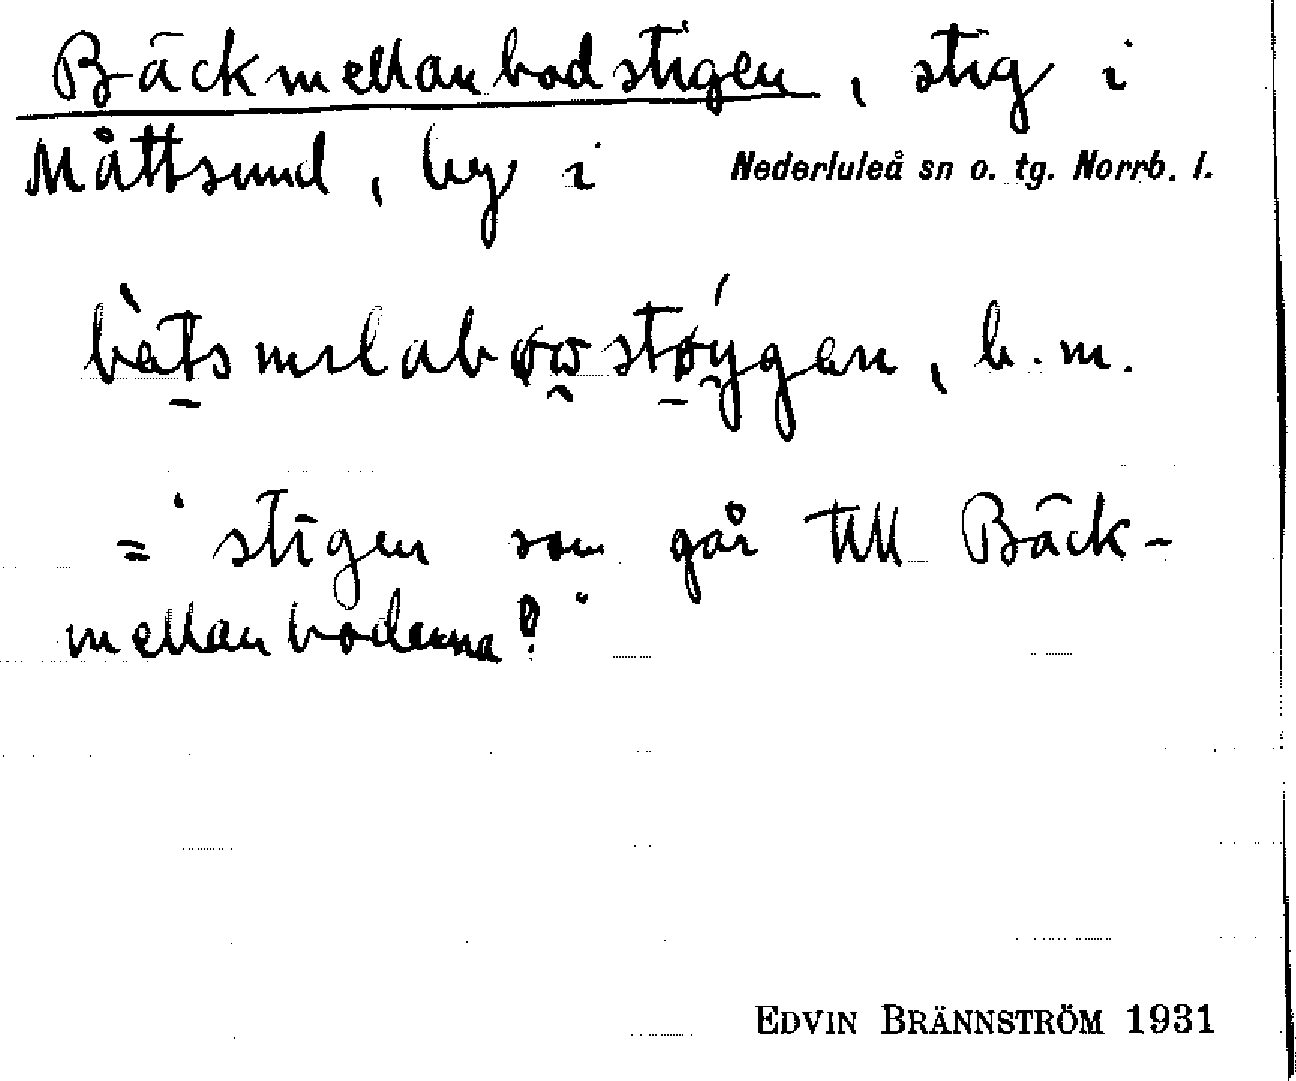 Bäckmellanbodstigen, stig i
Måttsund, by i Nederluleå sn o. tg. Norrb. l.
b. m.
= stigen som går till Bäck-
mellanboderna?
EDVIN BRÄNNSTRÖM 1931